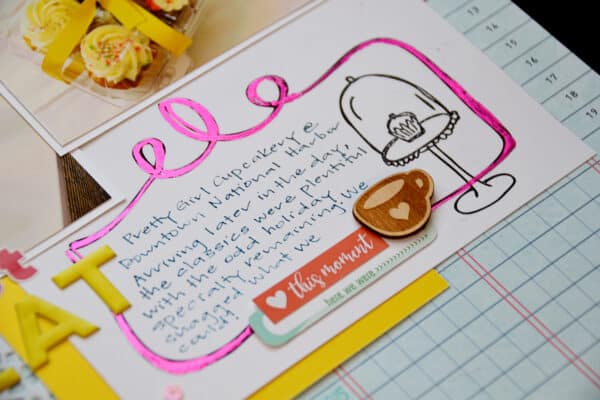 13
14
15
19
20
Pretty Girl Cupcakery @
Downtown National Harbor
Arriving later in the day,
the classics were plentiful
with the odd holiday
specialty remaining. We
snagged what we
could!
this moment
here we were
AT